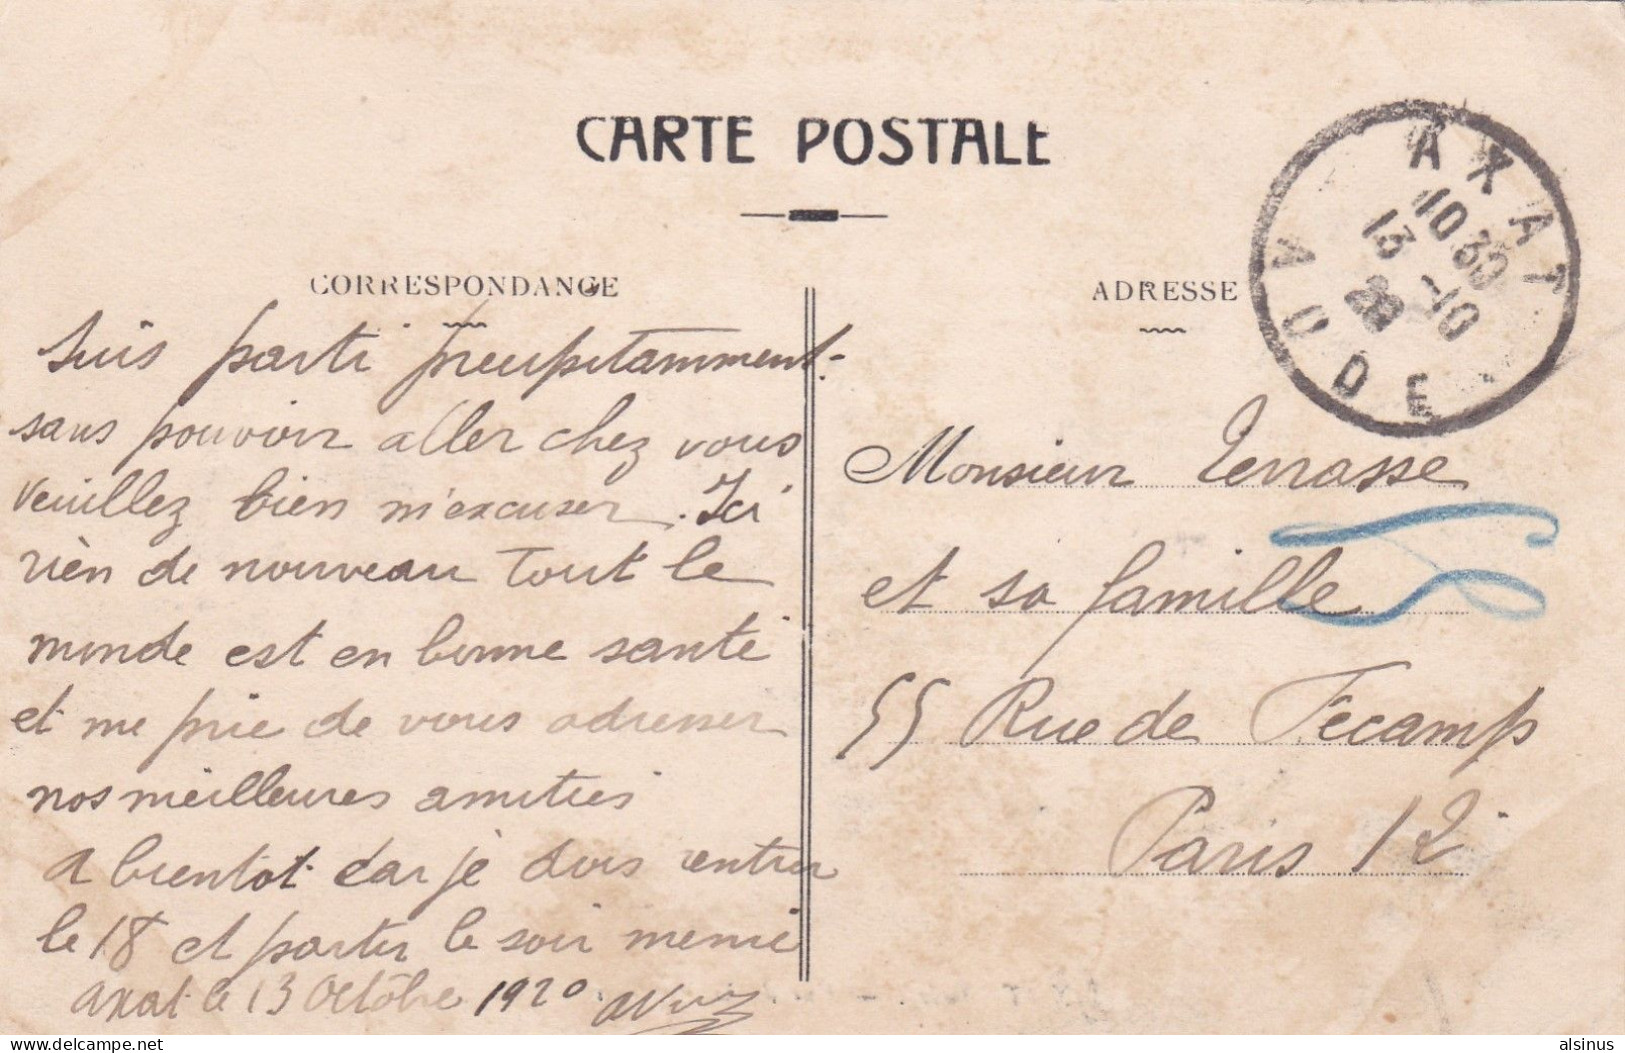 CARTE POSTALE
CORRESPONDANCE
ADRESSE
AXAT
10 30
13 -10
20
AUDE
Suis parti precipitamment
sans pouvoir aller chez vous
veuillez bien m'excuser. Ici
rien de nouveau tout le
monde est en bonne santé
et me prie de vous adresser
nos meilleures amitiés
a bientot car je dois rentrer
le 18 et partir le soir meme
axat le 13 Octobre 1920
Monsieur Terrasse
et sa famille
55 Rue de Fecamp
Paris 12
delcampe.net
alsinus